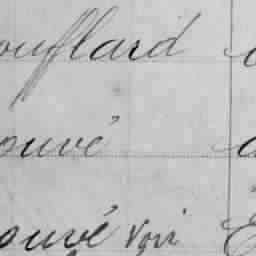 ouflard
ouvé
ouvé Voir